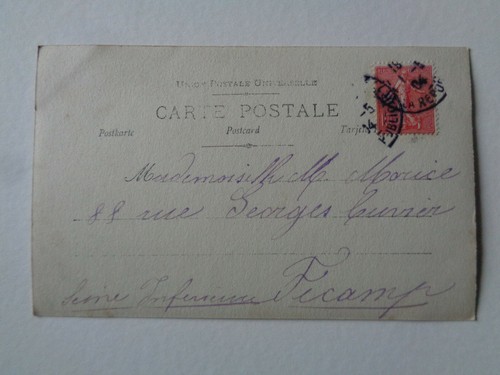 UNION POSTALE UNIVERSELLE
CARTE POSTALE
Postkarte Postcard Tarjeta
Mademoiselle M. Morice
88 rue Georges Cuvier
Seine Inférieure Fécamp